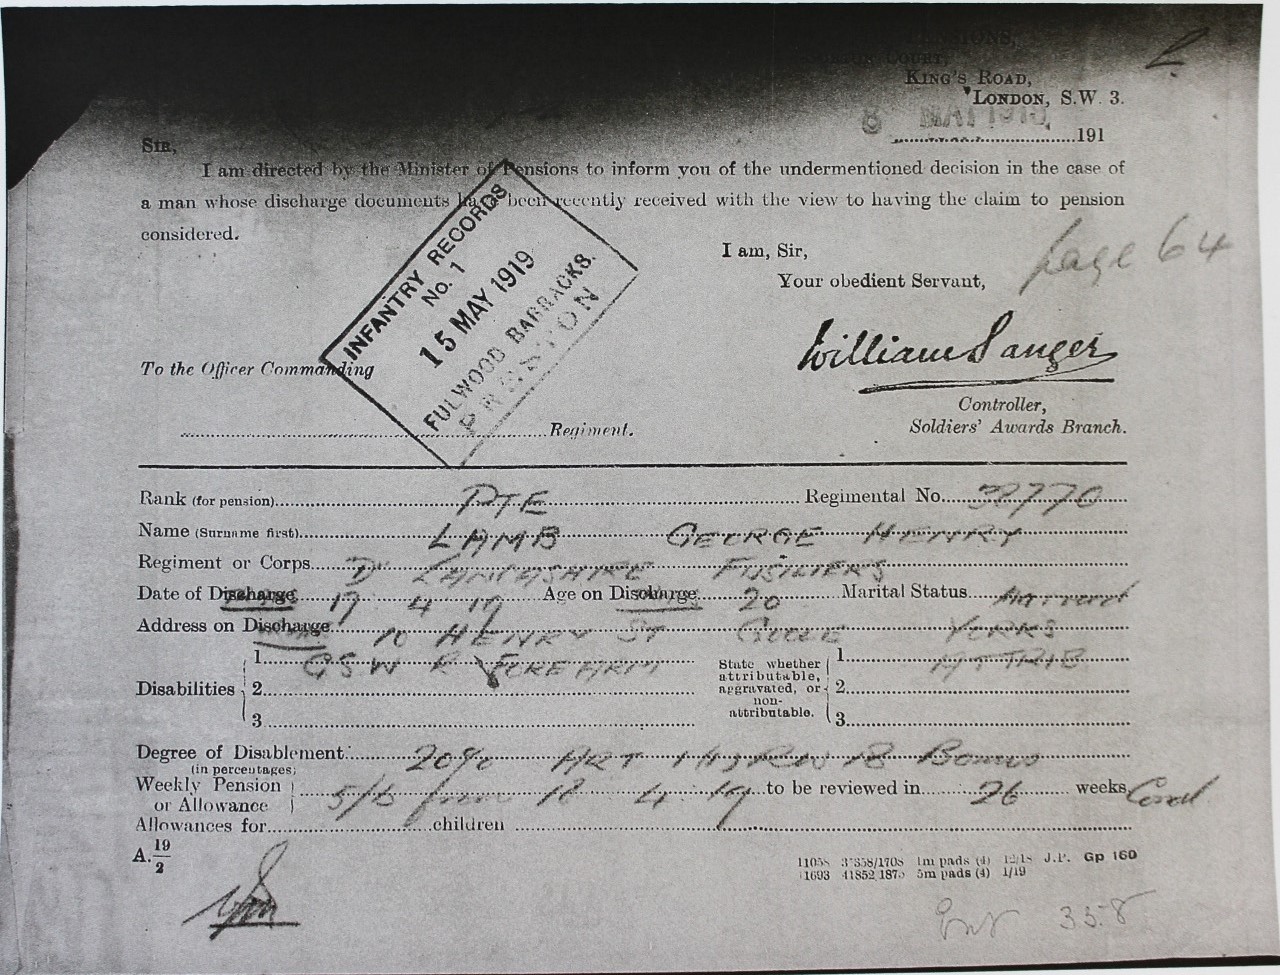 KING'S ROAD,
LONDON, S.W. 3.
8 MAY 1919
191
SIR,
I am directed by the Minister of Pensions to inform you of the undermentioned decision in the case of
a man whose discharge documents have been recently received with the view to having the claim to pension
considered.
I am, Sir,
Your obedient Servant,
page 64
INFANTRY RECORDS
No. 1
15 MAY 1919
FULWOOD BARRACKS.
PRESTON
William Sanger
To the Officer Commanding
Controller,
Soldiers' Awards Branch.
Regiment.
Rank (for pension) PTE Regimental No. 38770
Name (Surname first) LAMB GEORGE HENRY
Regiment or Corps LANCASHIRE FUSILIERS
Date of Discharge 17 4 19 Age on Discharge 20 Marital Status Married
Address on Discharge 10 HENRY ST GOOLE YORKS
Disabilities
1 GSW R FOREARM
2
3
State whether attributable, aggravated, or non-attributable.
1 ATTRIB
2
3
Degree of Disablement: 20% ART 1 Bonus
(in percentages)
Weekly Pension or Allowance 5/6 from 18 4 19 to be reviewed in 26 weeks Cond
Allowances for children
A. 19/2
1m pads (4) 12/18 J.P. Gp 160
5m pads (4) 1/19
358